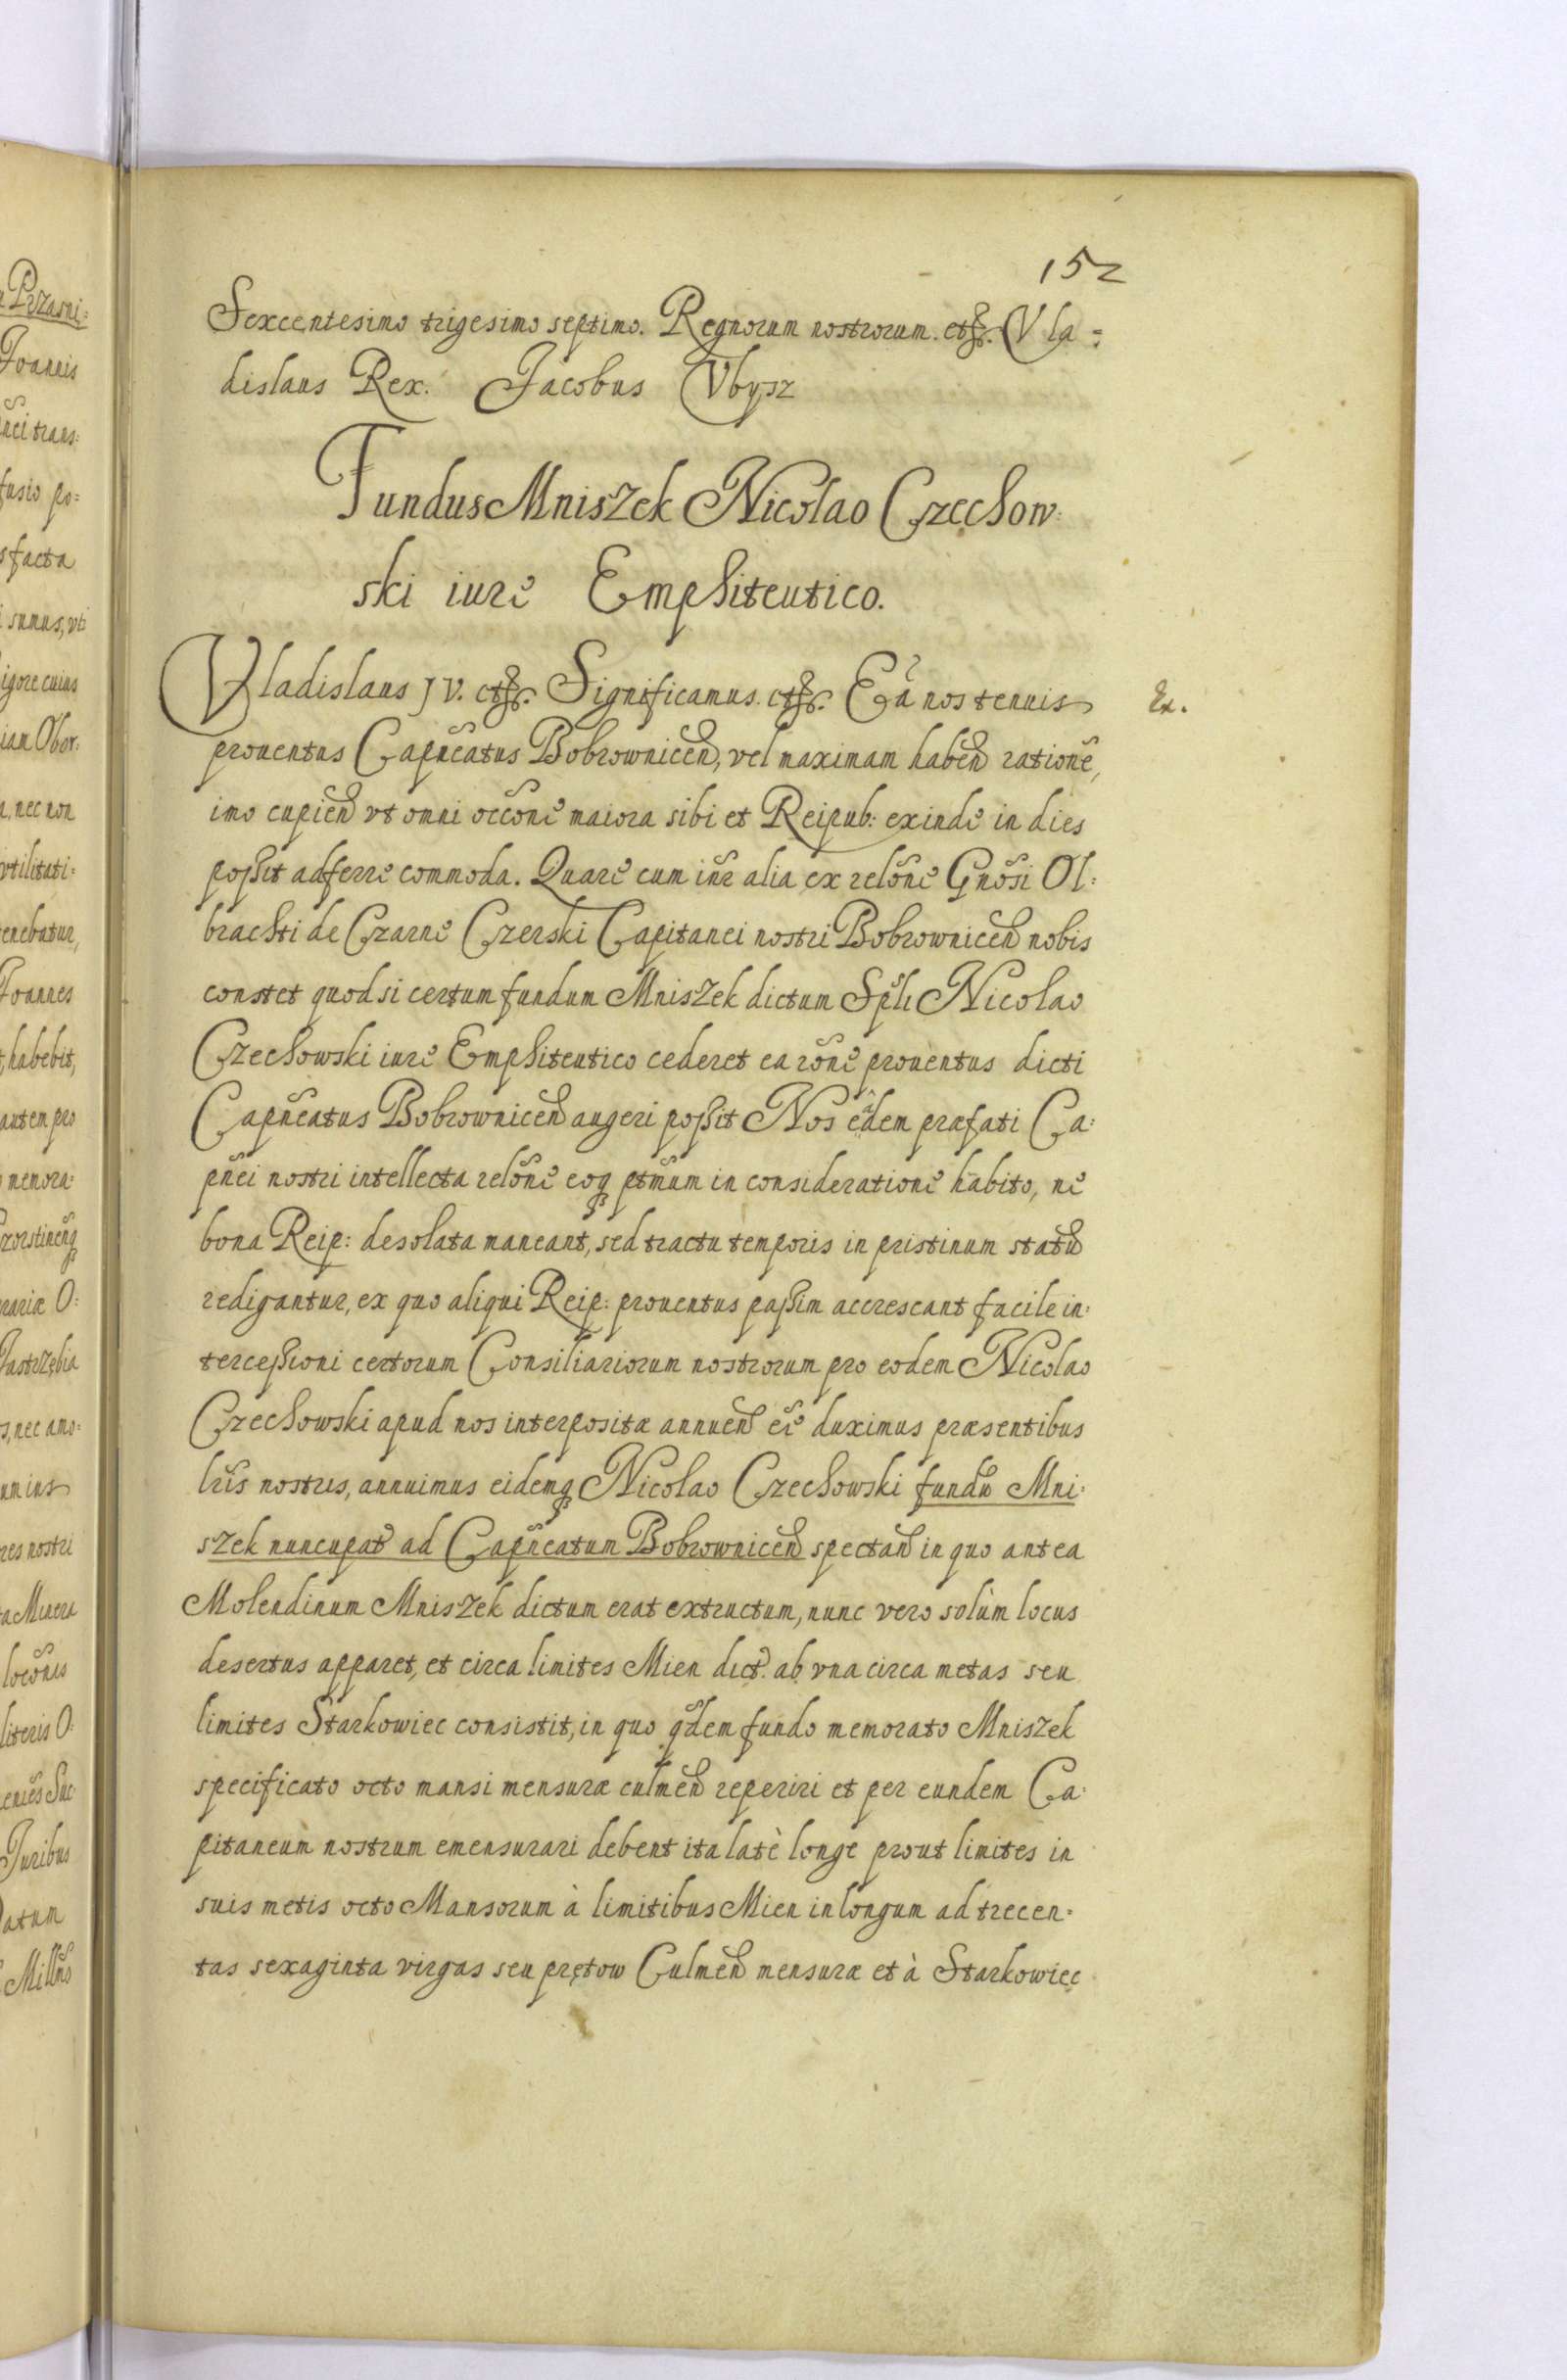 152
Sexcentesimo trigesimo septimo. Regnorum nostrorum. etc. Vla=
dislaus Rex. Jacobus Vbysz
Fundus Mniszek Nicolao Czechow:
ski iure Emphiteutico.
Vladislaus IV. etc. Significamus. etc. Ea nos tenuis
Ex.
prouentus Capńeatus Bobrownicen, vel maximam haben rationē,
imo cupien vt omni occōne maiora sibi et Reipub: exinde in dies
possit adferre commoda. Quare cum inr̄ alia ex relōne Gnōsi Ol:
brachti de Czarne Czerski Capitanei nostri Bobrownicen nobis
constet quod si certum fundum Mniszek dictum Spli Nicolao
Czechowski iure Emphiteutico cederet ea rōne prouentus dicti
Capńeatus Bobrownicen augeri possit Nos eâdem præfati Ca:
pńei nostri intellecta relōne eoq ptm̄um in consideratione habito, ne
bona Reip: desolata maneant, sed tractu temporis in pristinum statū
redigantur, ex quo aliqui Reip: prouentus passim accrescant facile in:
tercessioni certorum Consiliariorum nostrorum pro eodem Nicolao
Czechowski apud nos interpositæ annuen ēe duximus præsentibus
lr̄is nostris, annuimus eidemq Nicolao Czechowski fundū Mni:
szek nuncupat ad Capńeatum Bobrownicen spectan in quo antea
Molendinum Mniszek dictum erat extructum, nunc vero solùm locus
desertus apparet, et circa limites Mien dict. ab vna circa metas seu
limites Starkowiec consistit, in quo qdem fundo memorato Mniszek
specificato octo mansi mensuræ culmen reperiri et per eundem Ca:
pitaneum nostrum emensurari debent ita latè longe prout limites in
suis metis octo Mansorum à limitibus Mien in longum ad trecen:
tas sexaginta virgas seu prętow Culmen mensuræ et à Starkowiec